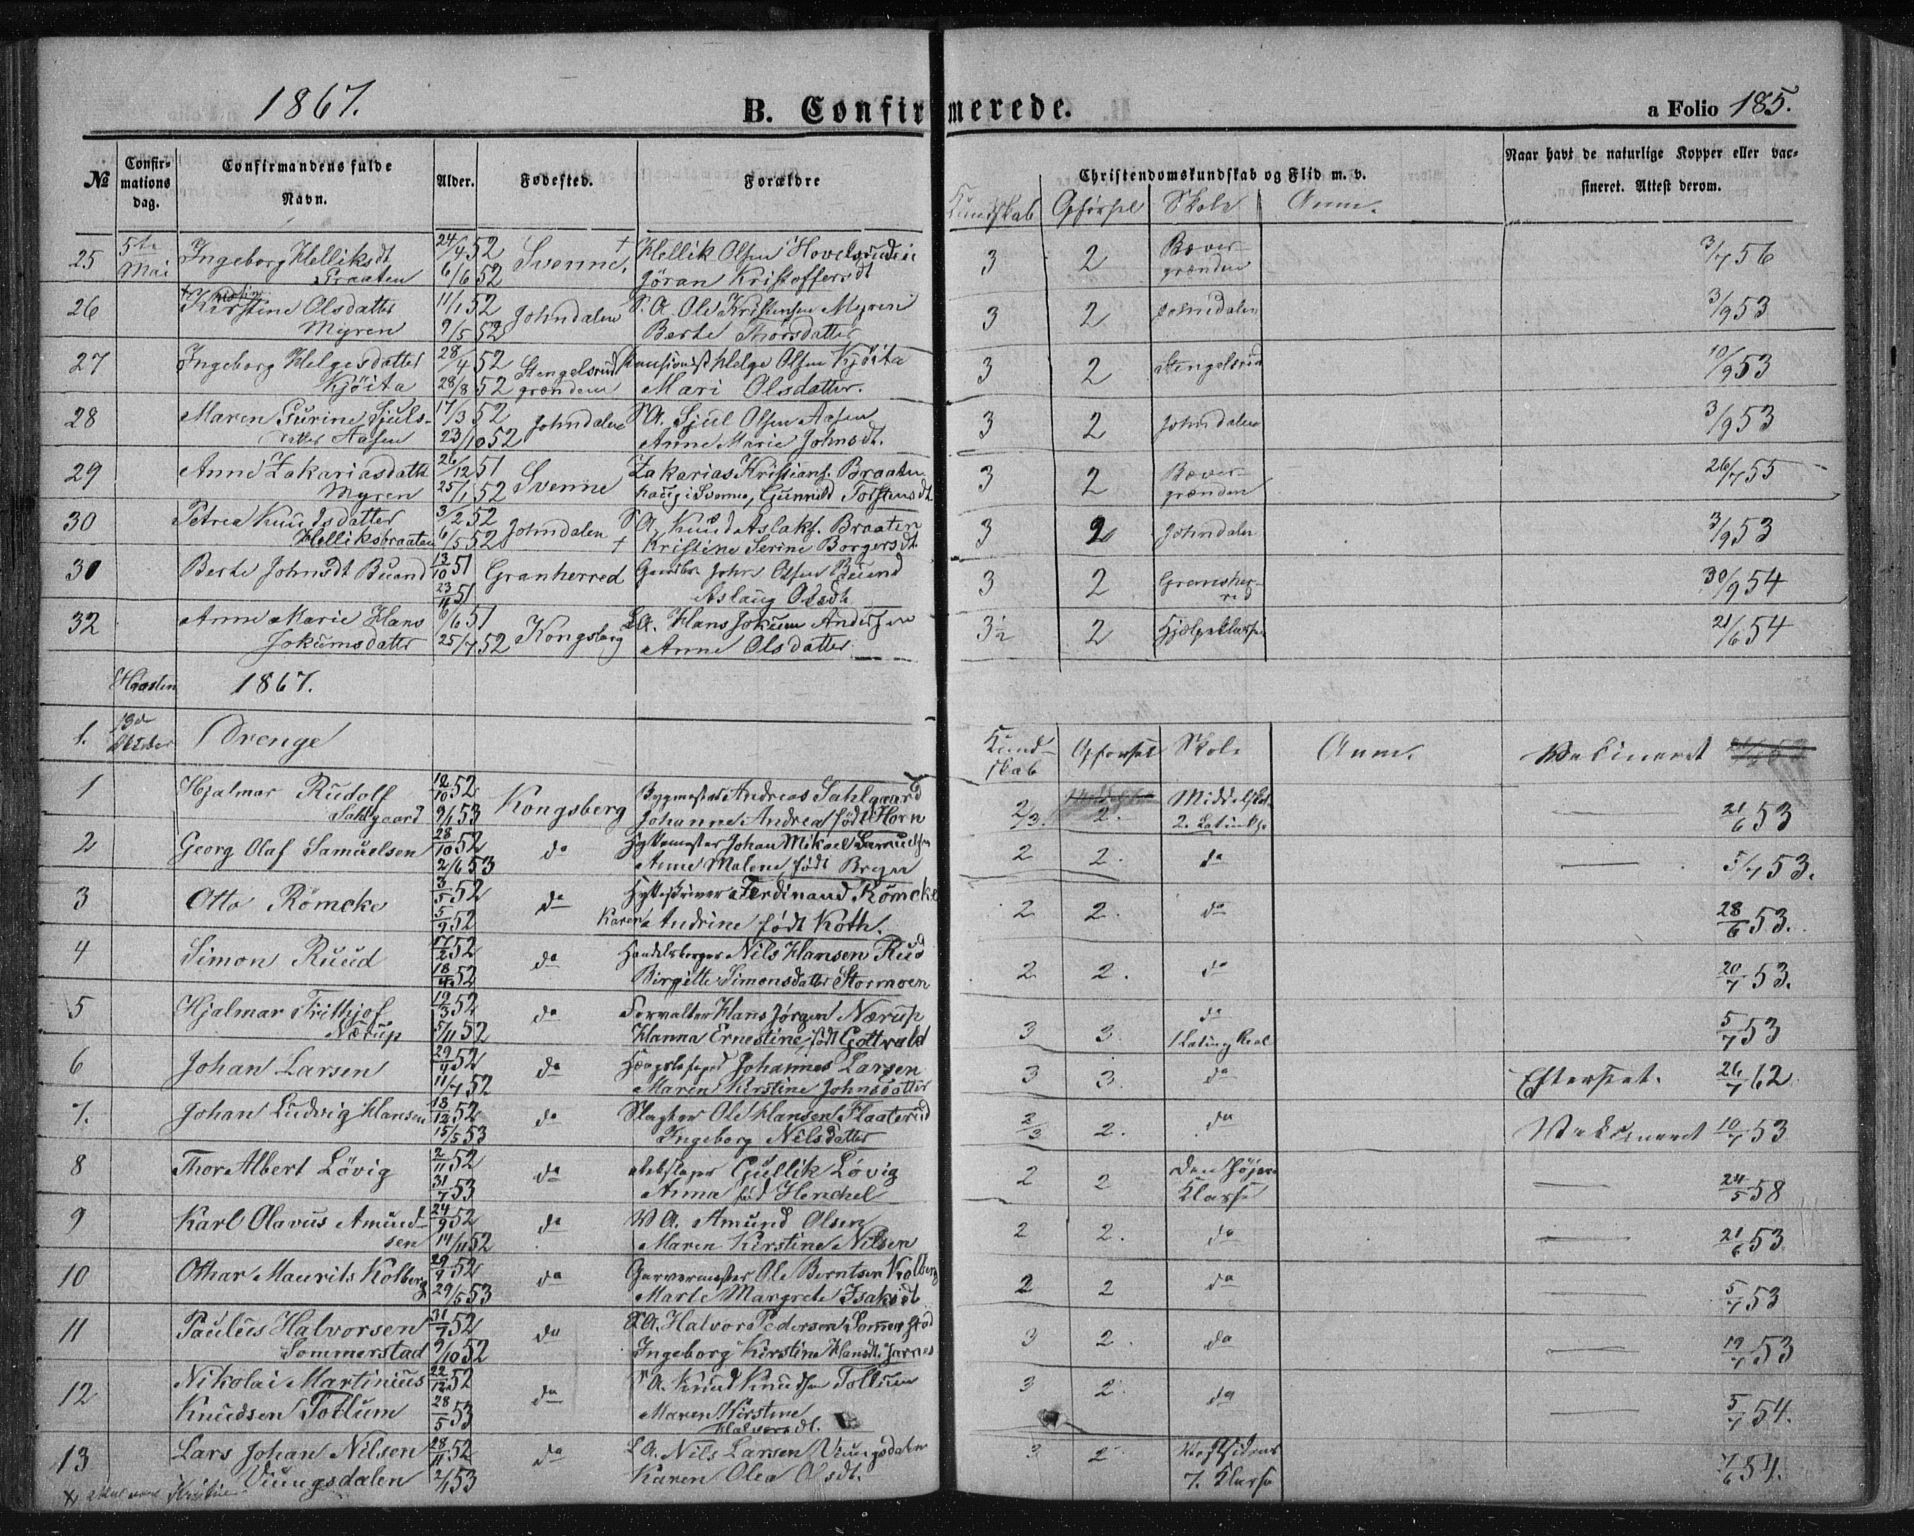 1867.
B. Confirmerede.
a Folio 185.
№
Confir-
mations
dag.
Confirmandens fulde
Navn.
Alder.
Fødested.
Forældre
Christendomskundskab og Flid m. v.
Naar havt de naturlige Kopper eller vac-
sineret. Attest derom.
Kundskab Opførsel Skole Anm.
25 5te Mai Ingeborg Helliksdt Braaten 24/4 52 6/6 52 Svenne. † Hellik Olsen Hovelsrudei Jöran Kristoffersdt 3 2 Bæver-grænden 3/7 56
26 Kirstine Olsdatter Myren 11/1 52 9/5 52 Johndalen S. A. Ole Kristensen Myren Berte Thorsdatter 3 2 Johndalen 3/9 53
27 Ingeborg Helgesdatter Kjöita 28/4 52 28/8 52 Stengelsrud grænden Pensionist Helge Olsen Kjöita Mari Olsdatter. 3 2 Stengelsrud 10/9 53
28 Maren Gurine Sjuls-datter Aasen 17/3 52 23/10 52 Johndalen S. A. Sjul Olsen Aasen Anne Marie Johnsdt. 3 2 Johndalen 3/9 53
29 Anne Zakariasdatt Myren 26/12 51 25/1 52 Svenne Zakarias Kristians. Braaten haug i Svenne, Gunnild Torstensdt 3 2 Bæver-grænden 26/7 55
30 Petrea Knudsdatter Helliksbraaten 3/2 52 6/5 52 Johndalen † S. A. Knud Aslaks. Braaten Kristine Serine Borgersdt. 3 2 Johndalen 3/9 53
31 Berte Johnsdt Buind 13/10 51 23/11 51 Granherred Gaardbr. John Olsen Buind Aslaug Olsdt. 3 2 Gransher-red 30/9 54
32 Anne Marie Hans Jokumsdatter 6/6 51 25/7 52 Kongsberg S. A. Hans Jokum Andersen Anne Olsdatter 3½ 2 Hjælpeklasse 21/6 54
Høsten 1867.
1. 13de Oktober Drenge Kund-skab Opførsel Skole Anm. Vakineret
1 Hjalmar Rudolf Sahlgaard 12/10 52 9/1 53 Kongsberg Bygmester Andreas Sahlgaard Johanne Andrea født Horn 2/3. 2. Middelskol. 2. Latinkl. 21/6 53
2 Georg Olaf Samuelsen 28/10 52 2/6 53 do Hyttemester Johan Mikael Samuelsen Anne Malene født Bryn 2 2. do — 5/7 53.
3 Otto Römcke 3/5 52 5/9 52 do Hytteskriver Ferdinand Römcke Karen Andrine født Koth. 2 2. do 28/6 53.
4 Simon Ruud 17/2 52 18/4 52 do Handelsborger Nils Hansen Rud Birgitte Simonsdatter Stormoen 2 2. do 20/7 53.
5 Hjalmar Frithjof Nærup 19/3 52 5/11 52 do Forvalter Hans Jørgen Nærup Hanna Ernestine født Gottwald 3 3. do 1 Latin, Real 5/7 53
6 Johan Larsen 29/4 52 11/7 52 do Johannes Larsen Maren Kirstine Johnsdatter 3 3. do Efterset. 26/7 62
7. Johan Ludvig Hansen 18/12 52 15/5 53 do Slagter Ole Hansen Flaaterud Ingeborg Nilsdatter 2/3 2. do Vakcineret 10/7 53
8 Thor Albert Lövig 2/11 52 31/7 53 do Gullik Lövig Anna født Henchel 2 2 Den højere Klasse — 24/5 58
9 Karl Olavus Amund-sen 24/9 52 14/11 52 do V A. Amund Olsen Maren Kirstine Nilsen 2 2. do — 21/6 53
10 Othar Maurits Kolberg 29/9 52 29/5 53 do Garvermester Ole Berntsen Kolberg Marte Margrete Isaksdt. 2 2 do — 5/7 53
11 Paulus Halvorsen Sommerstad 31/7 52 9/10 52 do S. A. Halvor Pedersen Somerstad Ingeborg Kirstine Hansdt. Jarnes 3 2. do — 19/7 53
12 Nikolai Martinius Knudsen Tollum 22/12 52 28/5 53 do S. A. Knud Knudsen Tollum Maren Kirstine Halvorsdt. 3 2. do — 5/7 54.
13 Lars Johan Nilsen Vungsdalen 28/11 52 2/1 53 do S. A. Nils Larsen Vungsdalen Karen Olea Olsdt. 3 2. Vestsidens 7. Klasse 7/6 54.